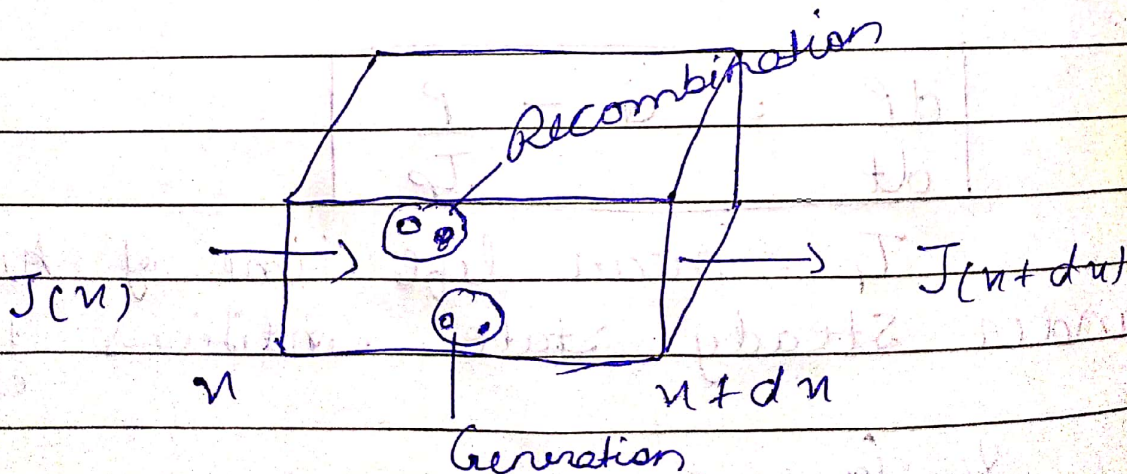 Recombination
J(x)
J(x+dx)
x
x+dx
Generation